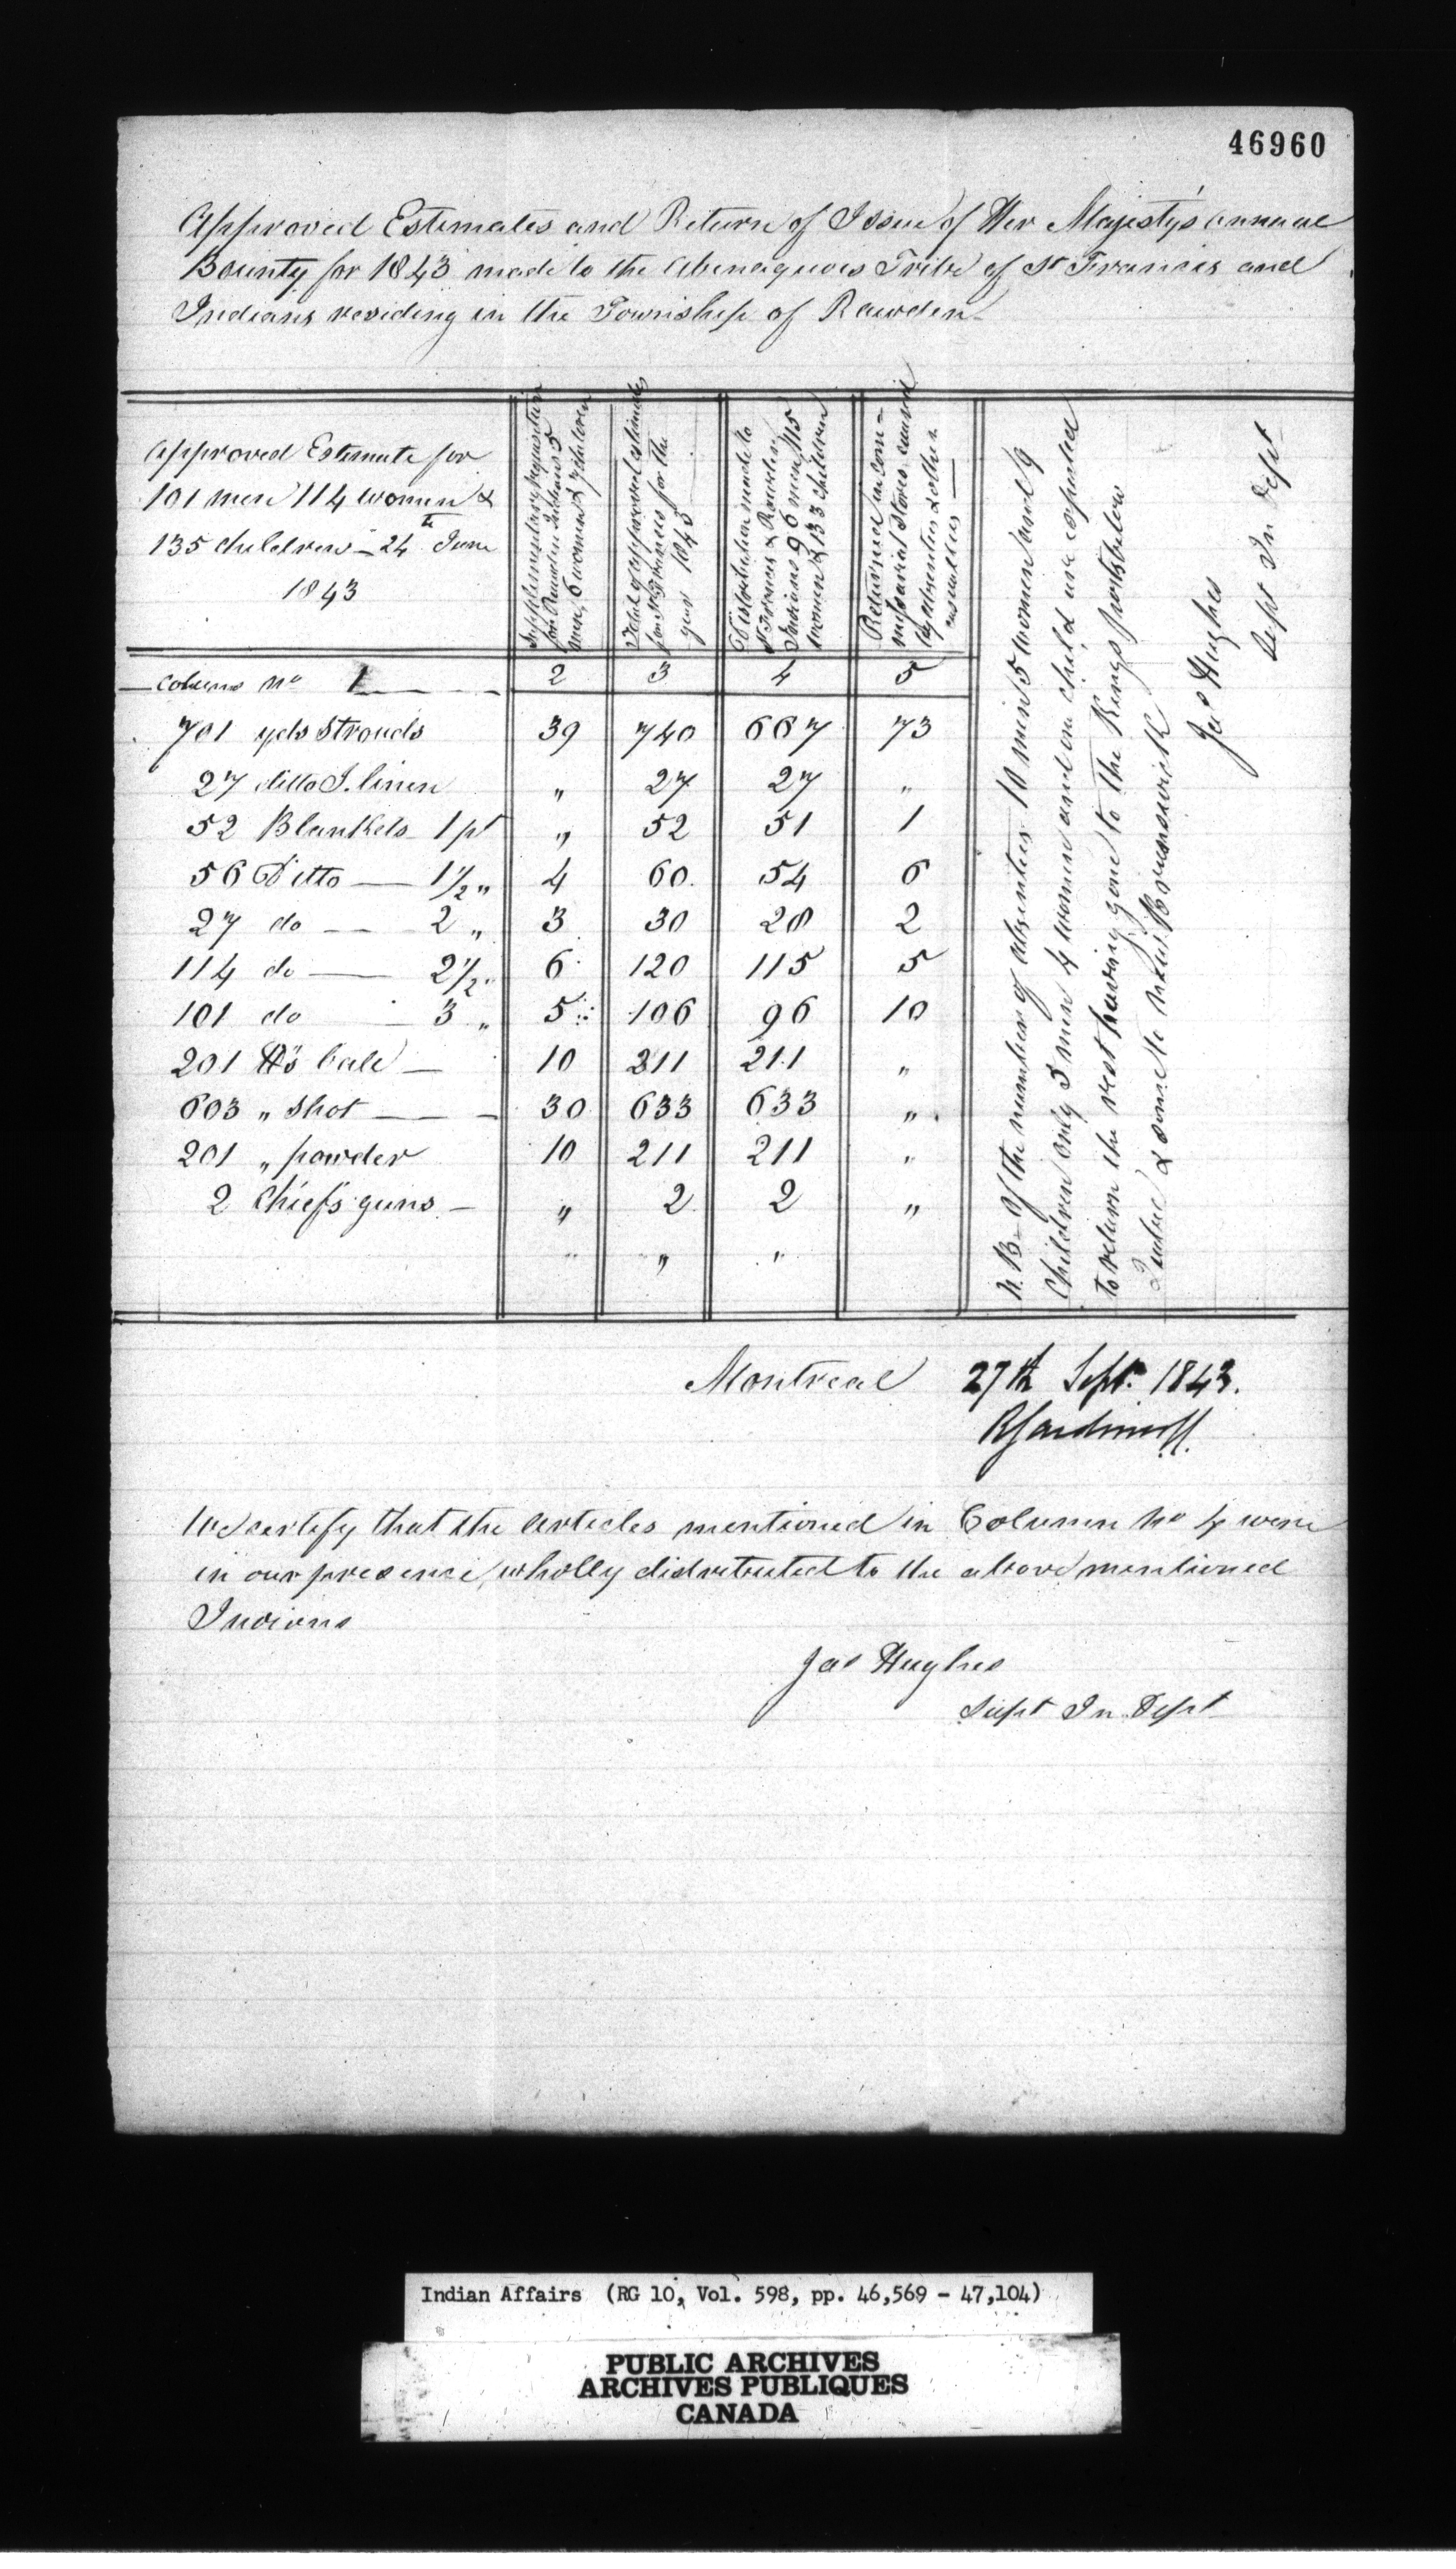 46960
Approved Estimates and Return of Issue of Her Majesty's annual
Bounty for 1843 made to the Abenaquois Tribe of St Francis and
Indians residing in the Township of Rawden
Approved Estimate for
101 men 114 women &
135 children _ 24th June
1843
Supplementary requisition
for Rawden Indians 5
men, 6 women & 7 children
Total of approved estimates
for St Frances for the
year 1843
Distribution made to
St Frances & Rawden
Indians 96 men, 115
women & 133 children
Returned in com=
missariat stores caused
by absentees & other
casualties
column No 1 2 3 4 5
701 yds Strouds 39 740 667 73
27 ditto I. linen " 27 27 "
52 Blankets 1 pt " 52 51 1
56 Ditto — 1½ " 4 60 54 6
27 do — 2 " 3 30 28 2
114 do — 2½ " 6 120 115 5
101 do 3 " 5 106 96 10
201 lbs ball — 10 211 211 "
603 " Shot — 30 633 633 "
201 " powder 10 211 211 "
2 Chiefs guns — " 2 2 "
" " "
N.B. Of the number of absentees 10 men 5 women and 9
Children only 3 men 4 women and one child are expected
to return the rest having gone to the Kings posts below
Quebec & some to New Brunswick
Jas Hughes
Supt In Dept
Montreal 27th Sept. 1843.
We certify that the articles mentioned in Column No 4 were
in our presence, wholly distributed to the above mentioned
Indians
Jas Hughes
Supt In. Dept
Indian Affairs (RG 10, Vol. 598, pp. 46,569 - 47,104)
PUBLIC ARCHIVES
ARCHIVES PUBLIQUES
CANADA